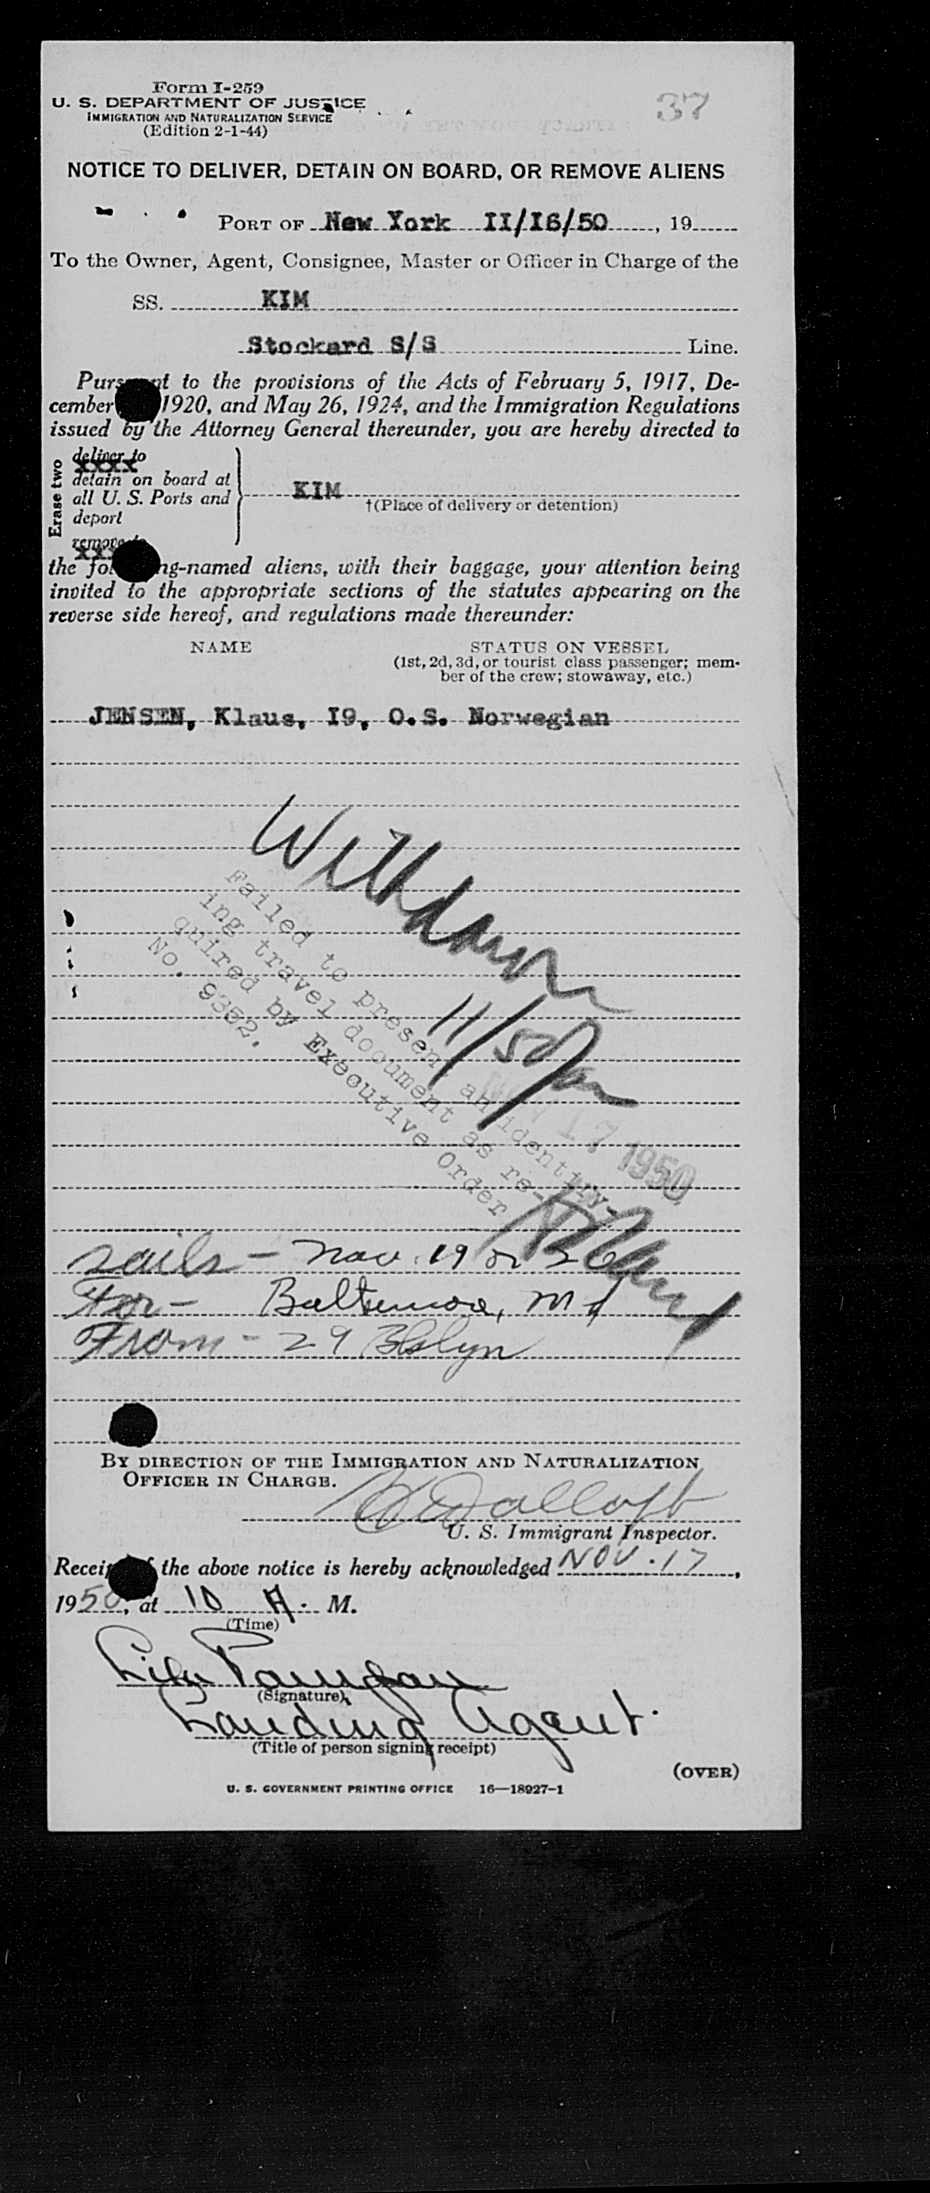 Form I-259
37
U. S. DEPARTMENT OF JUSTICE
IMMIGRATION AND NATURALIZATION SERVICE
(Edition 2-1-44)
NOTICE TO DELIVER, DETAIN ON BOARD, OR REMOVE ALIENS
PORT OF New York II/I6/50, 19
To the Owner, Agent, Consignee, Master or Officer in Charge of the
SS. KIM
Stockard S/S Line.
Pursuant to the provisions of the Acts of February 5, 1917, De-
cember 1920, and May 26, 1924, and the Immigration Regulations
issued by the Attorney General thereunder, you are hereby directed to
Erase two
deliver to
xxxx
detain on board at
all U. S. Ports and
deport
remove to
xxx
KIM
†(Place of delivery or detention)
the following-named aliens, with their baggage, your attention being
invited to the appropriate sections of the statutes appearing on the
reverse side hereof, and regulations made thereunder:
NAME
STATUS ON VESSEL
(1st, 2d, 3d, or tourist class passenger; mem-
ber of the crew; stowaway, etc.)
JENSEN, Klaus, I9, O.S. Norwegian
Withdrawn
Failed to present an identify-
ing travel document as re-
quired by Executive Order
No. 9352.
11/50
17 1950
sails - Nov. 19 or 20
For - Baltimore, Md
From - 29 Bklyn
BY DIRECTION OF THE IMMIGRATION AND NATURALIZATION
OFFICER IN CHARGE.
U. S. Immigrant Inspector.
Receipt of the above notice is hereby acknowledged NOV. 17,
1950, at 10 A. M.
(Time)
(Signature)
Landing Agent.
(Title of person signing receipt)
(OVER)
U. S. GOVERNMENT PRINTING OFFICE 16—18927-1